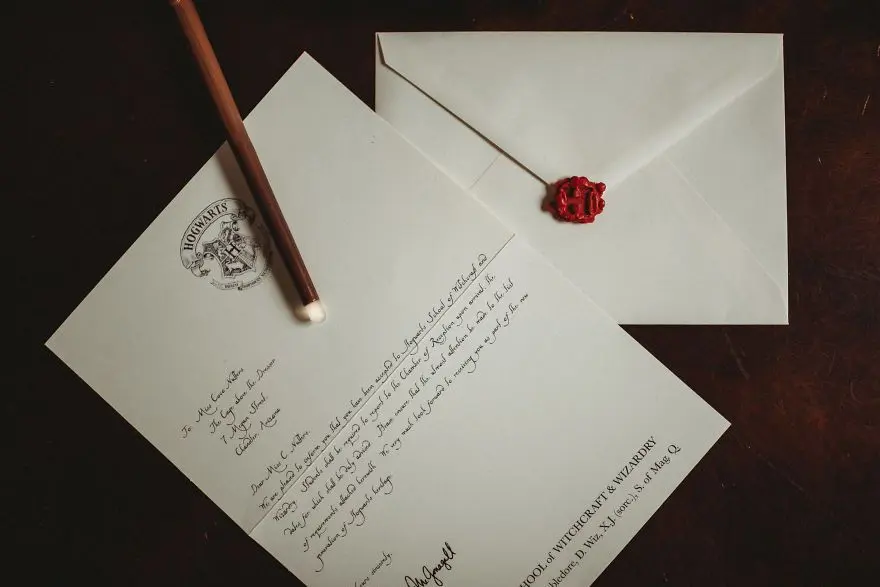 HOGWARTS
To: Miss
The Cage above the Dresser
7 Megan Street
Chandler, Arizona
Dear Miss C.
We are pleased to inform you that you have been accepted to Hogwarts School of Witchcraft and
Wizardry. Students shall be required to report to the Chamber of Reception upon arrival, the
dates for which shall be duly advised. Please ensure that the utmost attention be made to the list
of requirements attached herewith. We very much look forward to receiving you as part of the new
generation of Hogwarts heritage.
sincerely,
McGonagall
HOOL of WITCHCRAFT & WIZARDRY
bledore, D. Wiz, X.J. (sorc.), S. of Mag. Q